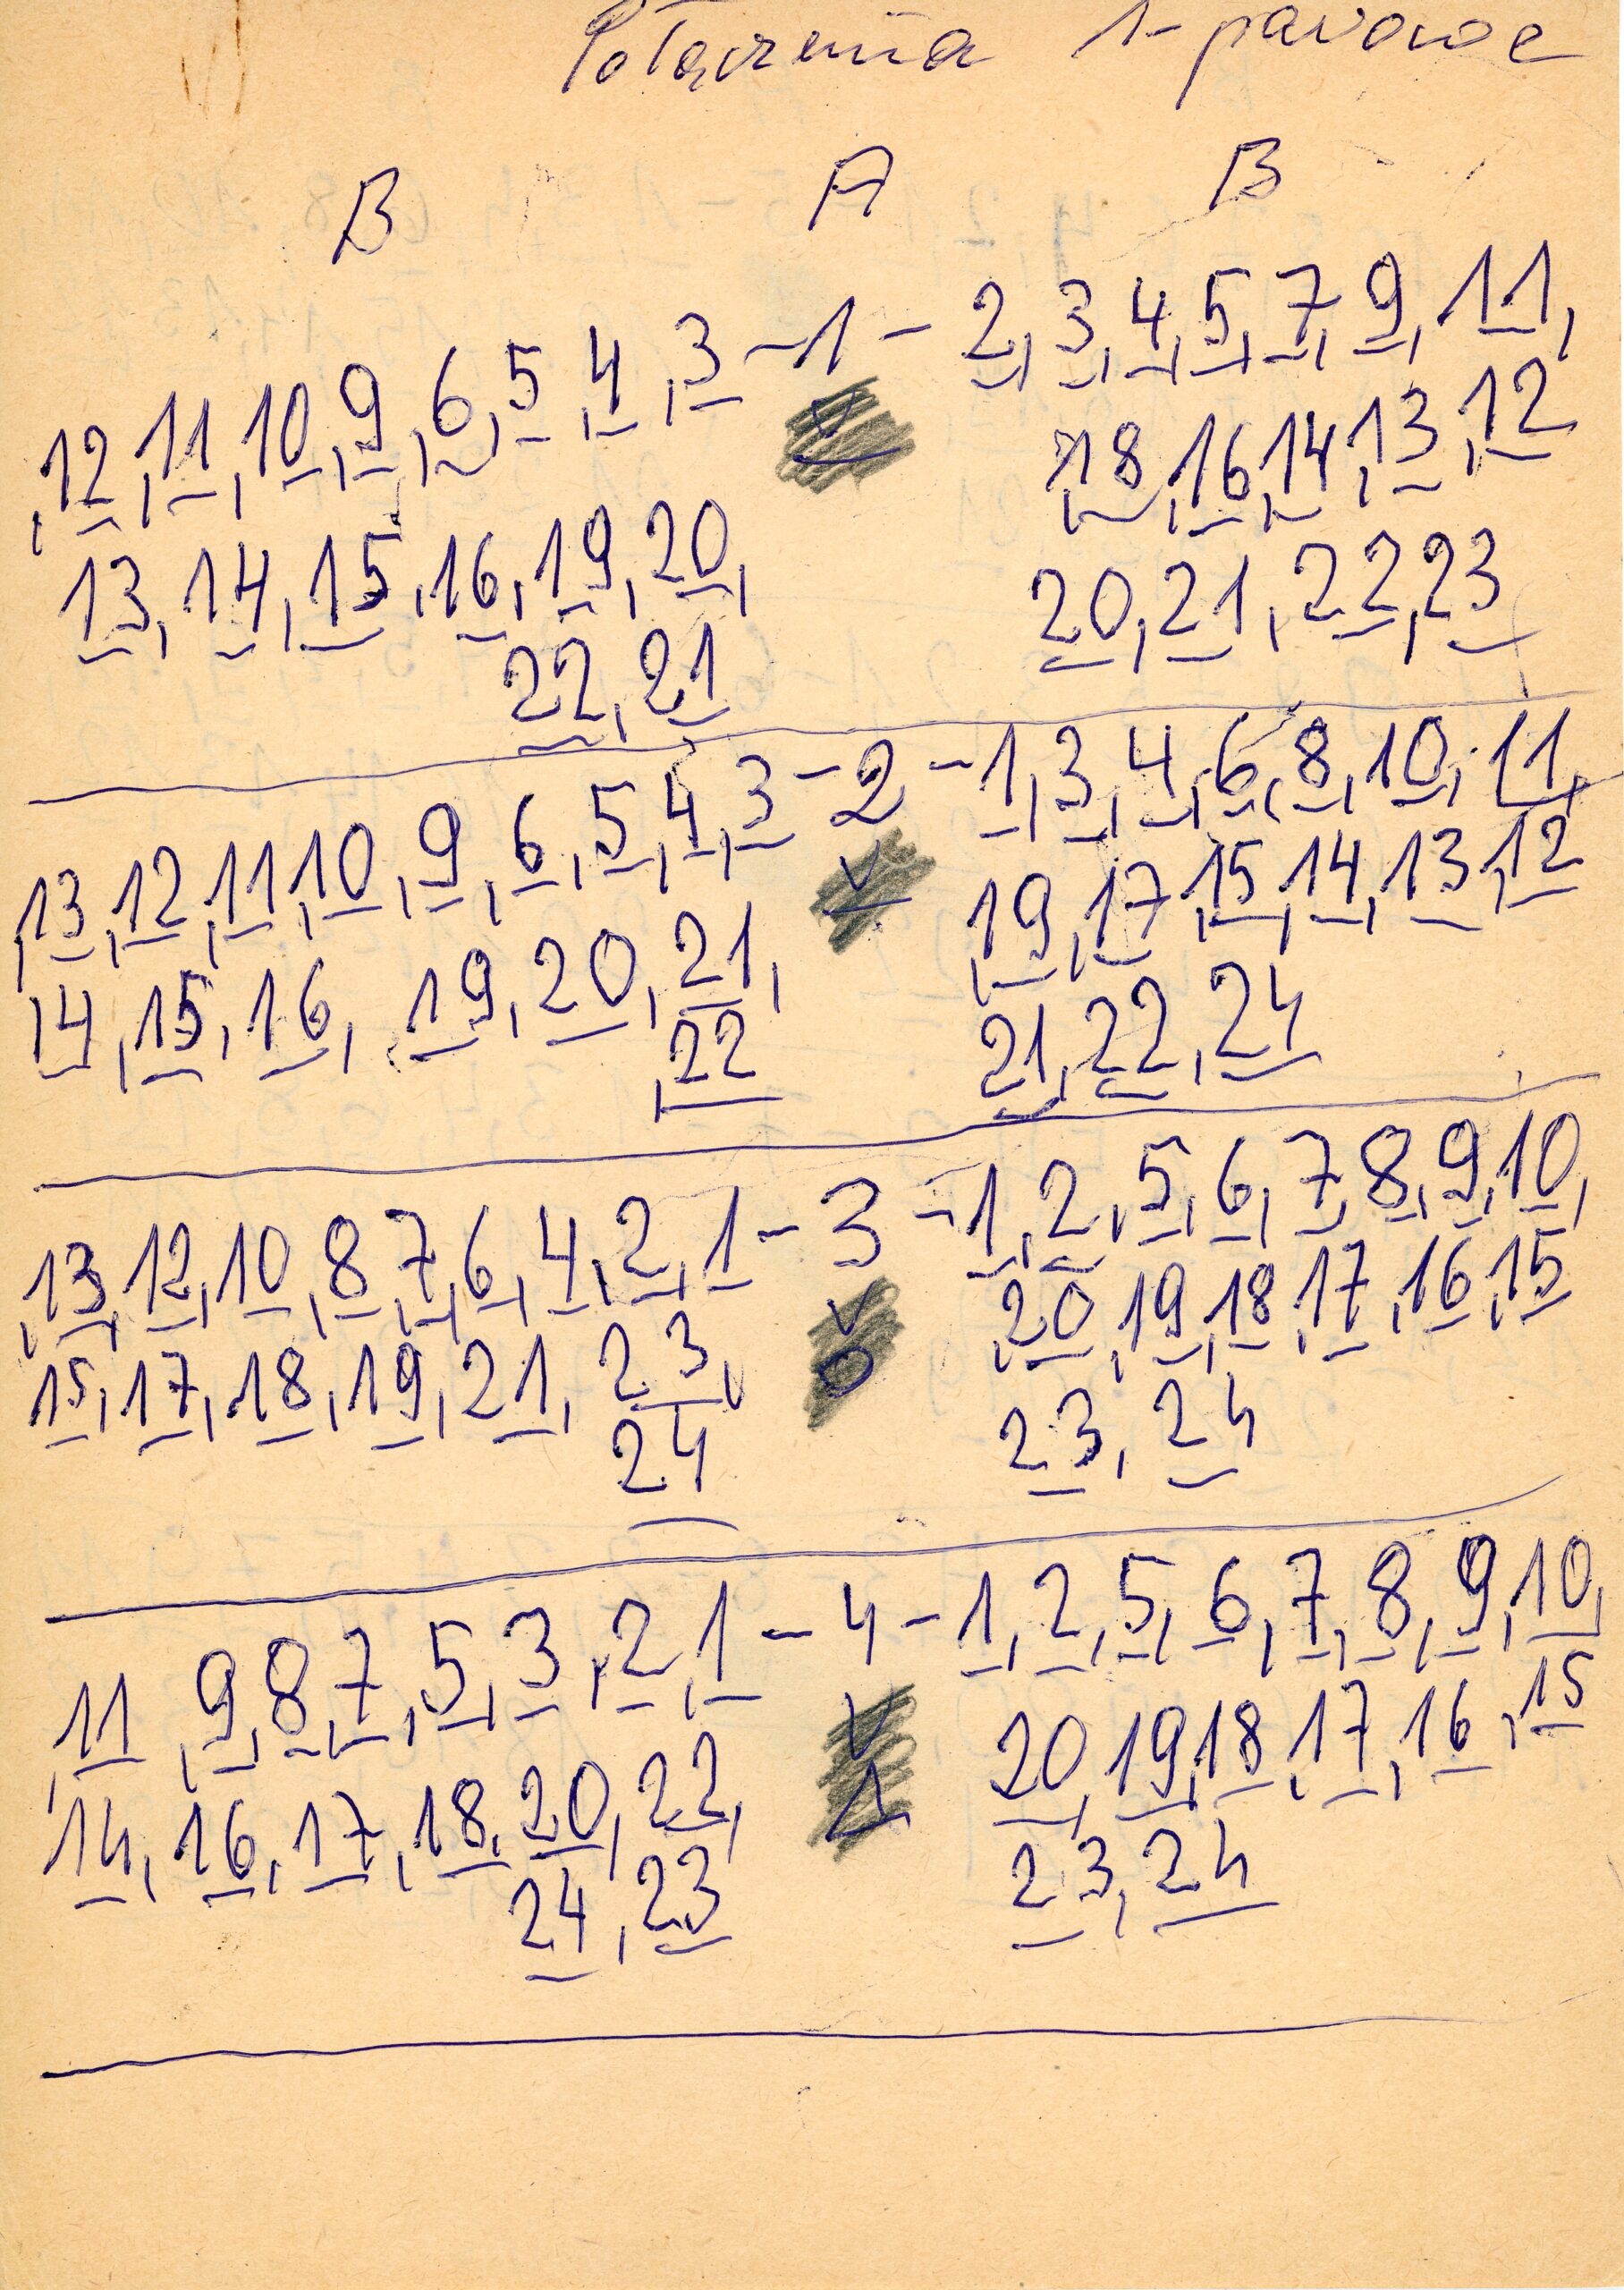 Połączenia 1-parowe
B A B
,12,11,10,9,6,5,4,3-1-2,3,4,5,7,9,11,
,18,16,14,13,12
13,14,15,16,19,20,
20,21,22,23
22,21
,13,12,11,10,9,6,5,4,3-2-1,3,4,6,8,10,11,
,19,17,15,14,13,12
14,15,16,19,20,21,
21,22,24
,22
,13,12,10,8,7,6,4,2,1-3-1,2,5,6,7,8,9,10,
,20,19,18,17,16,15
15,17,18,19,21,23,
23,24
24
,11 9,8,7,5,3,2,1-4-1,2,5,6,7,8,9,10,
20,19,18,17,16,15
14,16,17,18,20,22,
23,24
24,23